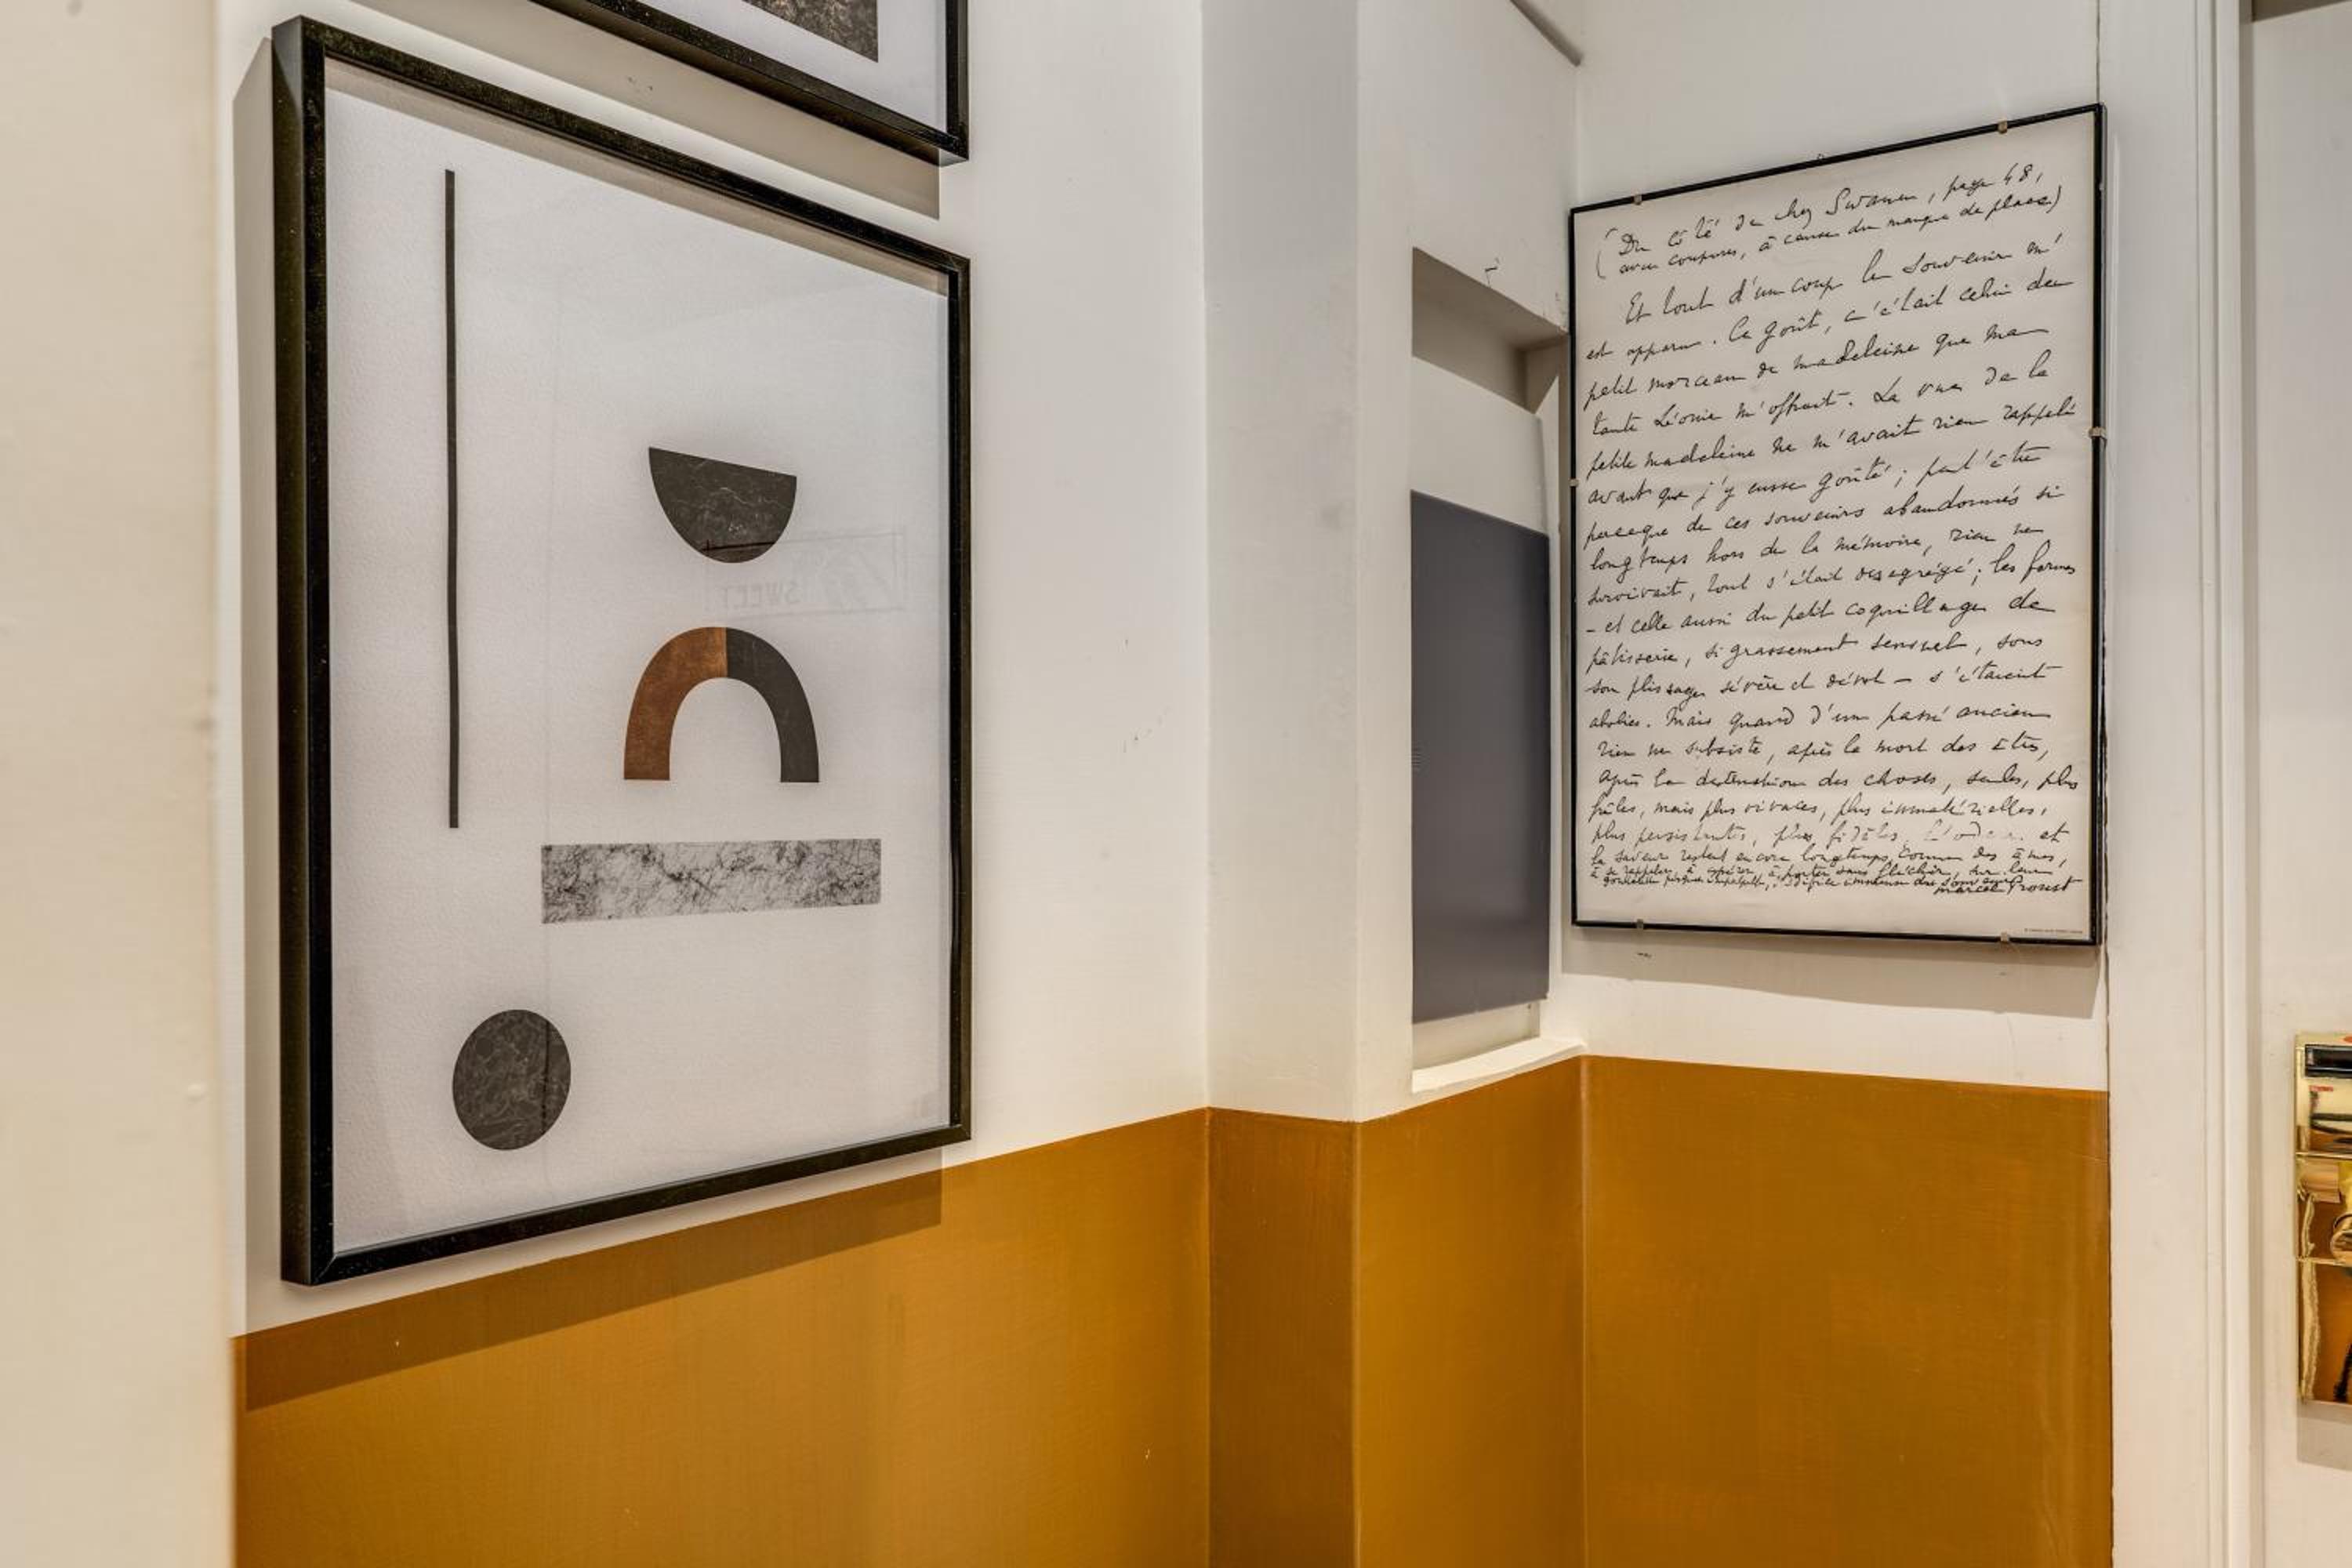 SWEET
(Du côté de chez Swann, page 48,
avec coupures, à cause du manque de place)
Et tout d'un coup le souvenir m'
est apparu. Ce goût, c'était celui du
petit morceau de madeleine que ma
tante Léonie m'offrait. La vue de la
petite madeleine ne m'avait rien rappelé
avant que j'y eusse goûté; peut'être
parceque de ces souvenirs abandonnés si
longtemps hors de la mémoire, rien ne
survivait, tout s'était désagrégé; les formes
- et celle aussi du petit coquillage de
pâtisserie, si grassement sensuel, sous
son plissage sévère et dévot – s'étaient
abolies. Mais quand d'un passé ancien
rien ne subsiste, après la mort des êtres,
après la destruction des choses, seules, plus
frêles, mais plus vivaces, plus immatérielles,
plus persistantes, plus fidèles, l'odeur et
la saveur restent encore longtemps, comme des âmes,
à se rappeler, à espérer, à porter sans fléchir, sur leur
gouttelette presque impalpable, l'édifice immense du souvenir
Marcel Proust